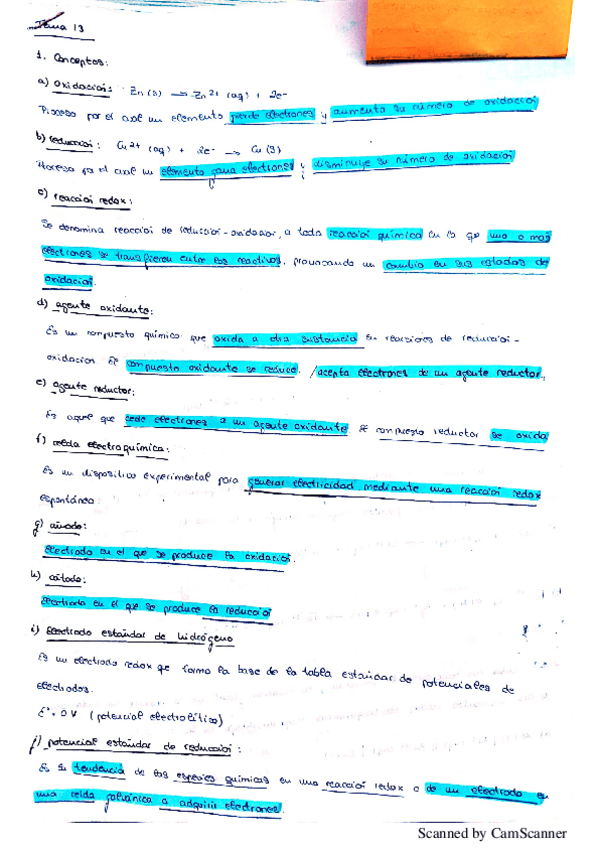 Tema 13
1. Conceptos:
a) oxidación: Zn (s) → Zn2+ (aq) + 2e-
Proceso por el cual un elemento pierde electrones y aumenta su número de oxidación
b) reducción: Cu2+ (aq) + 2e- → Cu (s)
Proceso por el cual un elemento gana electrones y disminuye su número de oxidación
c) reacción redox:
Se denomina reacción de reducción-oxidación, a toda reacción química en la que uno o más
electrones se transfieren entre los reactivos, provocando un cambio en sus estados de
oxidación.
d) agente oxidante:
Es un compuesto químico que oxida a otra sustancia en reacciones de reducción-
oxidación el compuesto oxidante se reduce. /acepta electrones de un agente reductor.
e) agente reductor:
Es aquel que cede electrones a un agente oxidante el compuesto reductor se oxida
f) celda electroquímica:
Es un dispositivo experimental para generar electricidad mediante una reacción redox
espontánea.
g) ánodo:
Electrodo en el que se produce la oxidación.
h) cátodo:
Electrodo en el que se produce la reducción
i) Electrodo estándar de hidrógeno
Es un electrodo redox que forma la base de la tabla estándar de potenciales de
electrodos.
E° = 0 V (potencial electrolítico)
j) potencial estándar de reducción:
Es la tendencia de las especies químicas en una reacción redox o de un electrodo en
una celda galvánica a adquirir electrones.
Scanned by CamScanner